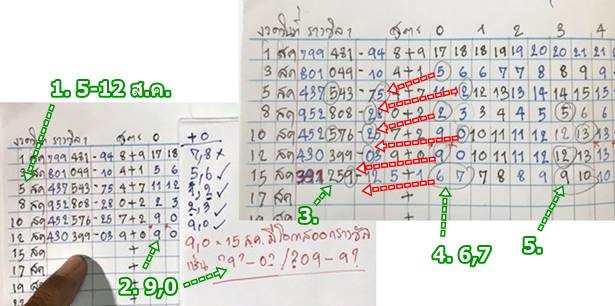 1. 5-12 ส.ค.
งวดวันที่ รางวัล 1 สูตร 0
1 สค 799 431 - 94 8+9 17 18
3 สค 801 049 - 10 4+1 5 6
5 สค 437 543 - 75 4+7 11 12
8 สค 952 808 - 28 0+2 2 3
10 สค 452 576 - 25 7+2 9 0
12 สค 430 399 - 03 9+0 9 0
15 สค +
17 สค +
+0
7,8 ×
5,6 ✓
1,2 ✓
2,3 ✓
9,0 ✓
2. 9,0
9,0 = 15 สค. มีโอกาสออกรางวัล
เช่น ?9?-0? /?09-9?
งวดวันที่ รางวัล 1 สูตร 0 1 2 3 4
1 สค 799 431 - 94 8+9 17 18 18 19 19 20 20 21 21
3 สค 801 049 - 10 4+1 5 6 6 7 7 8 8 9 9
5 สค 437 543 - 75 4+7 11 12 12 13 13 14 14 15 15
8 สค 952 808 - 28 0+2 2 3 3 4 4 5 5 6 6
10 สค 452 576 - 25 7+2 9 0 10 11 11 12 12 13 13
12 สค 430 399 - 03 9+0 9 0 10 11 11 12 12 13 13
15 สค 391 259 - 12 5+1 6 7 7 8 8 9 9 10 10
17 สค +
3.
4. 6,7
5.